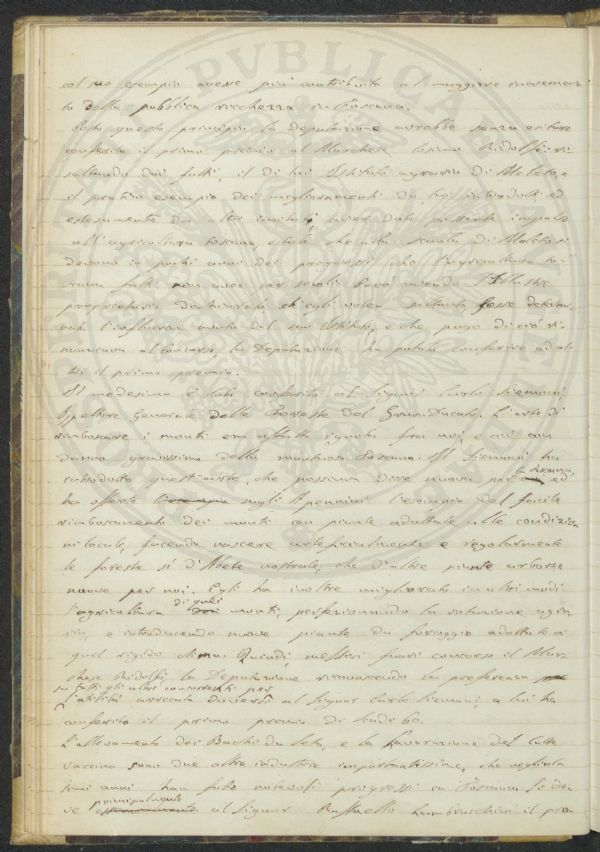 col suo esempio avesse più contribuito al maggiore incremen
to della pubblica ricchezza in Toscana.
Posto questo principio la Deputazione avrebbe senza esitare
conferito il primo premio al Marchese Cosimo Ridolfi ri
sultando dai fatti, il di lui Istituto agrario di Meleto, e
il pratico esempio dei miglioramenti da lui introdotti ed
estesamente da altri imitati aver dato potente impulso
all'agricoltura toscana, e che alla scuola di Meleto si
devono in pochi anni dei progressi che l'agricoltura to
scana fatti non avea per secoli. Però avendo l'Illustre
proprietario dichiarato ch'egli voleva soltanto fosse determi
nata l'influenza avuta dal suo Istituto, e che pago di ciò ri
nunziava al Concorso, la Deputazione ha potuto conferire ad al
tri il primo premio.
Il medesimo è stato conferito al Signor Carlo Siemoni
Ispettore Generale delle Foreste del Gran-Ducato. L'arte di
rimboscare i monti era affatto ignota fra noi, e ciò con
danno gravissimo della montuosa Toscana. Il Siemoni ha
introdotto quest'arte, che possiam dire nuova per la Toscana, ed
ha offerto sugli Appennini l'esempio del facile
rimboscamento dei monti con piante adattate alle condizion
ni locali, facendo nascere artificialmente e regolarmente
le foreste sì d'Abete nostrale, che d'altre piante arboree
nuove per noi. Egli ha inoltre migliorato in altri modi
l'agricoltura di quei monti, perfezionando la rotazione agra
ria, e introducendo nuove piante da foraggio adattate a
quel rigido clima. Quindi, messosi fuori concorso il Mar
chese Ridolfi, la Deputazione riconoscendo la preferenza
su tutti gli altri concorrenti per
l'utilità arrecata doversi al Signor Carlo Siemoni, a lui ha
conferito il primo premio di Scudi 60.
L'allevamento dei Bachi da Seta, e la lavorazione del latte
vaccino sono due altre industrie importantissime, che negli ul
timi anni han fatto notevoli progressi in Toscana. Si de
ve principalmente al Signor Raffaello Lambruschini il pro